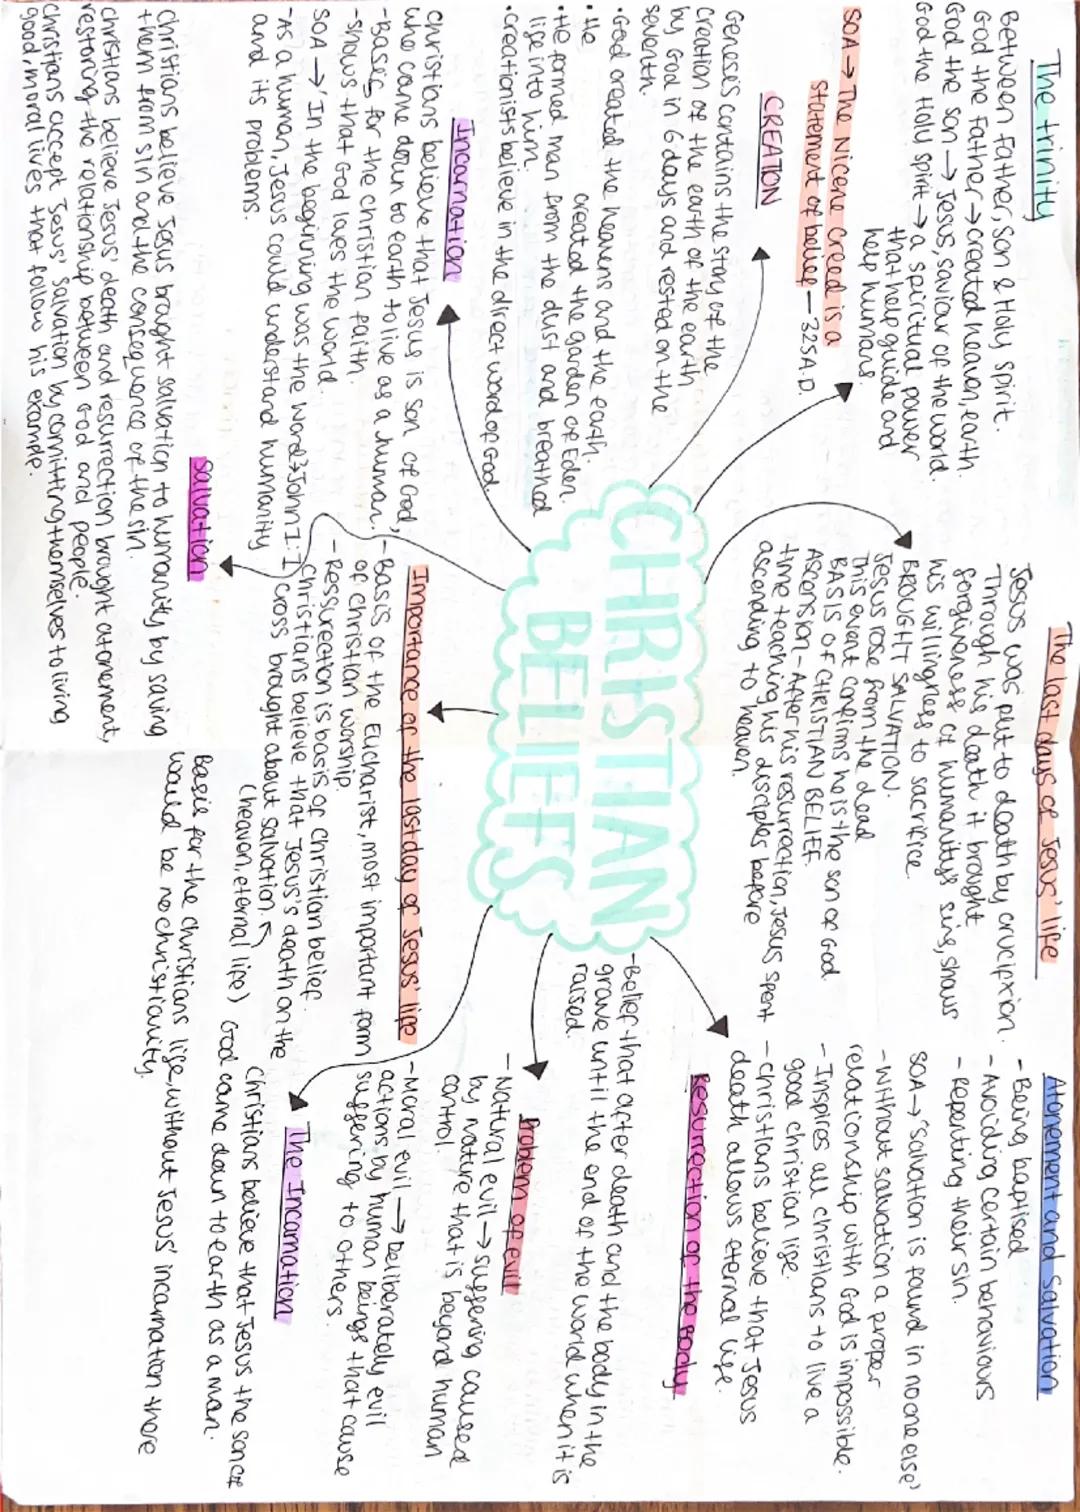 The trinity
Between Father, Son & Holy spirit.
God the Father → created heaven, earth
God the son → Jesus, saviour of the world.
God the Holy spirit → a spiritual power
that help guide and
help humans.
SOA → The Nicene Creed is a
statement of belief - 325A.D.
CREATION
Geneses contains the story of the
creation of the earth of the earth
by God in 6 days and rested on the
seventh.
• God created the heavens and the earth.
• He created the garden of Eden.
• He formed man from the dust and breathed
life into him.
• Creationists believe in the direct word of God.
Incarnation
Christians believe that Jesus is son of God,
who came down to earth to live as a human.
- Bases for the christian faith.
- shows that God loves the world.
SOA → 'In the beginning was the word' John 1:1
- As a human, Jesus could understand humanity
and its problems.
Salvation
Christians believe Jesus brought salvation to humanity by saving
them from sin and the consequence of the sin.
Christians believe Jesus' death and resurrection brought atonement,
restoring the relationship between God and people.
Christians accept Jesus' salvation by comitting themselves to living
good, moral lives that follow his example.
CHRISTIAN
BELIEFS
The last days of Jesus' life
Jesus was put to death by crucifixion.
Through his death it brought
forgiveness of humanity's sins, shows
his willingness to sacrifice.
BROUGHT SALVATION.
Jesus rose from the dead
This event confirms he is the son of God.
BASIS OF CHRISTIAN BELIEF.
Ascension - After his resurrection, Jesus spent
time teaching his disciples before
ascending to heaven.
Importance of the last day of Jesus' life
- Basis of the Eucharist, most important form
of christian worship.
- Ressurection is basis of Christian belief.
Christians believe that Jesus's death on the
cross brought about salvation.
(heaven, eternal life)
Atonement and Salvation
- Being baptised
- Avoiding certain behaviours
- Repenting their sin.
SOA → 'Salvation is found in no one else'
- without salvation a proper
relationship with God is impossible.
- Inspires all christians to live a
good christian life.
- Christians believe that Jesus
death allows eternal life.
Resurrection of the Body
- Belief that after death and the body in the
grave until the end of the world when it is
raised.
Problem of evil
- Natural evil → suffering caused
by nature that is beyond human
control.
- Moral evil → Deliberately evil
actions by human beings that cause
suffering to others.
The Incarnation
Christians believe that Jesus the son of
God came down to earth as a man.
Basis for the christians life, without Jesus' incarnation there
would be no christianity.